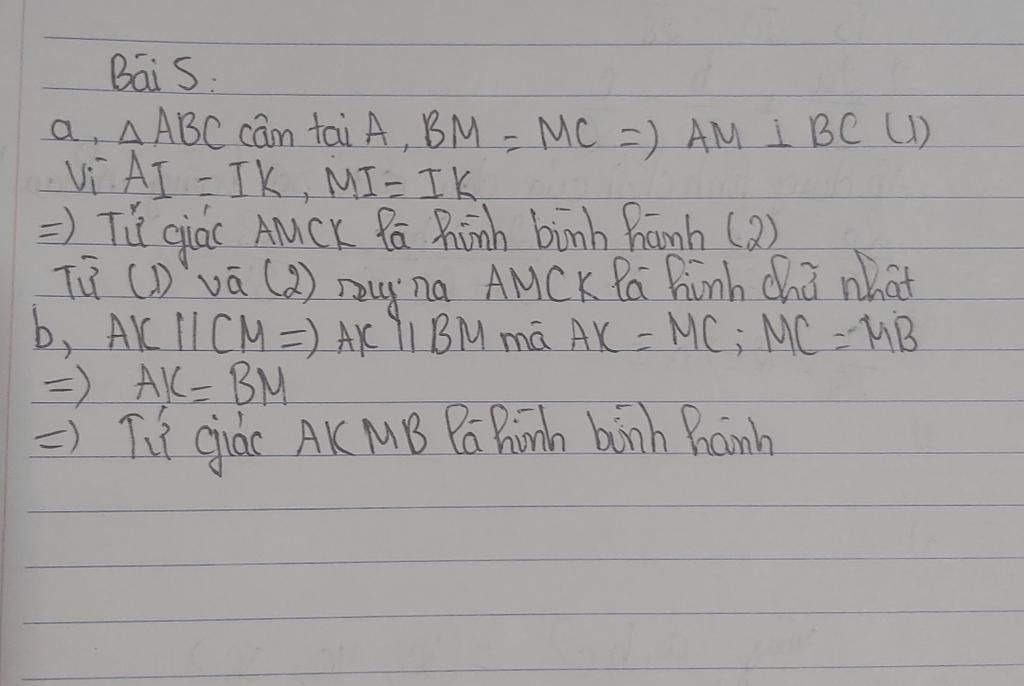 Bài 5:
a, △ABC cân tại A, BM = MC => AM ⊥ BC (1)
Vì AI = IK, MI = IK
=> Tứ giác AMCK là hình bình hành (2)
Từ (1) và (2) suy ra AMCK là hình chữ nhật
b, AK // CM => AK // BM mà AK = MC; MC = MB
=> AK = BM
=> Tứ giác AKMB là hình bình hành